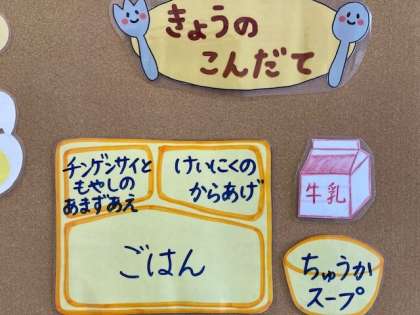 きょうの
こんだて
チンゲンサイと
もやしの
あまずあえ
けいにくの
からあげ
ごはん
牛乳
ちゅうか
スープ